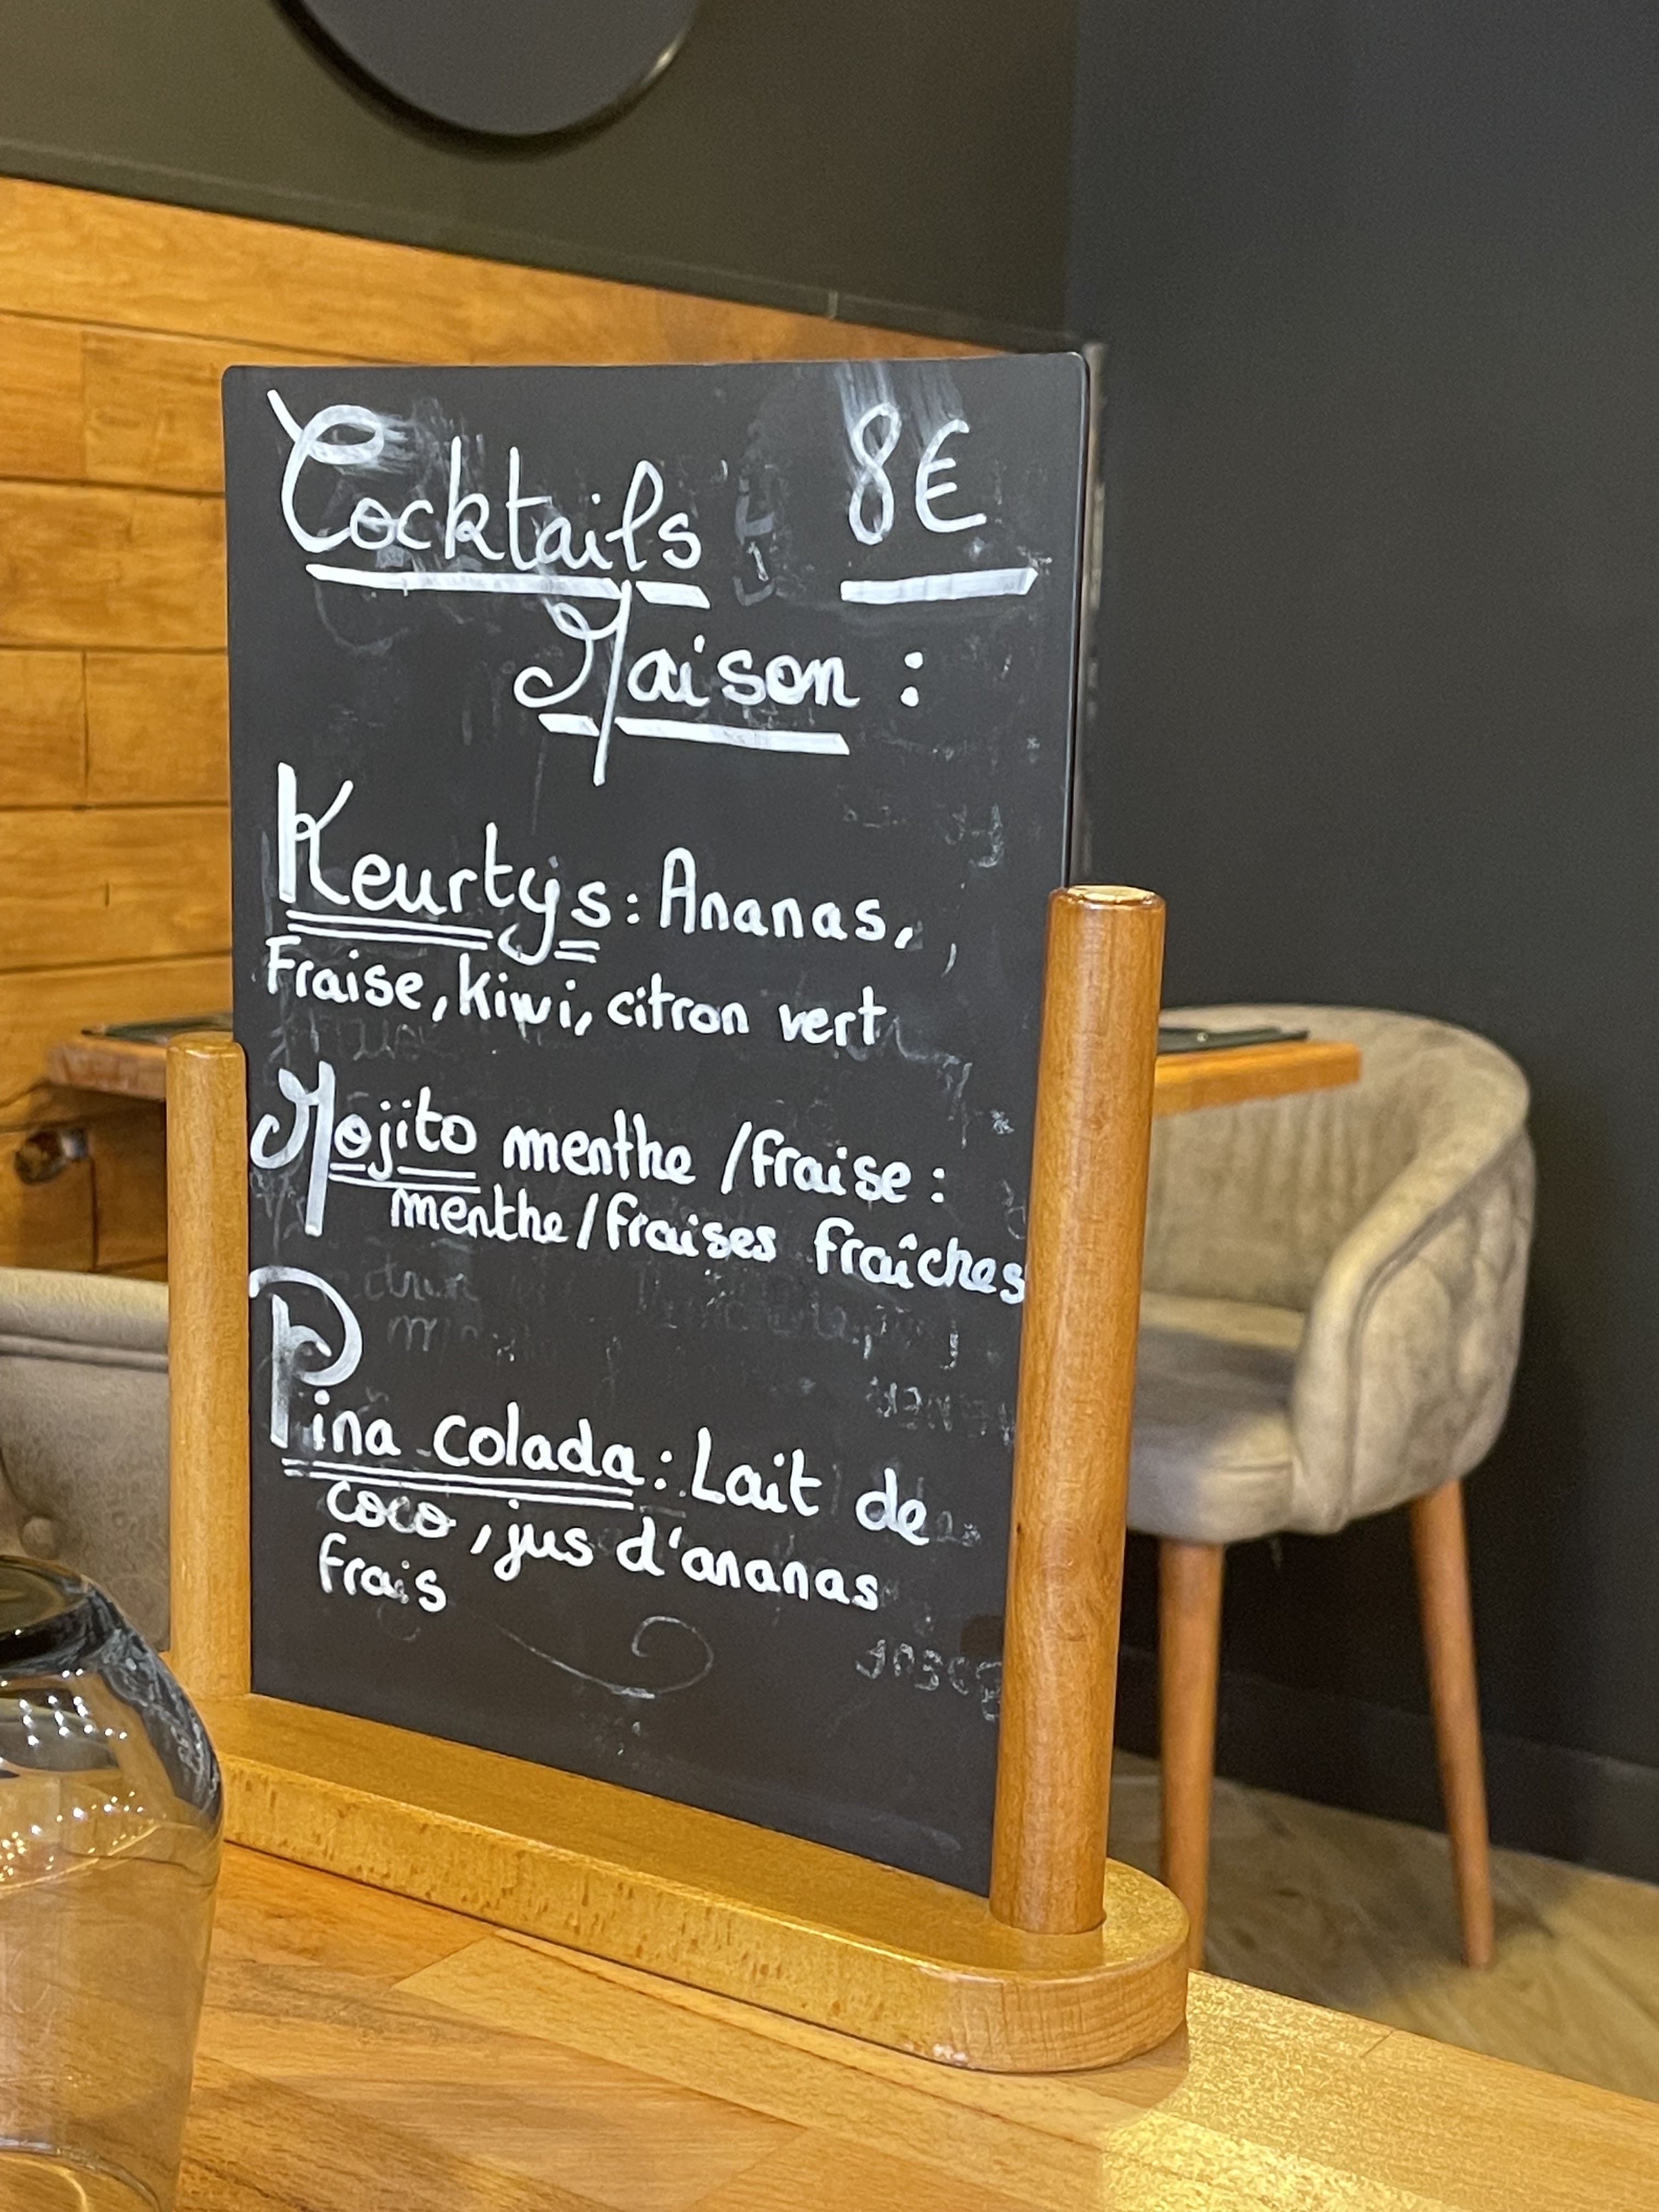 Cocktails 8€
Maison :
Keurtys : Ananas,
Fraise, kiwi, citron vert
Mojito menthe /fraise :
menthe/fraises fraîches
Pina colada : Lait de
coco, jus d'ananas
frais